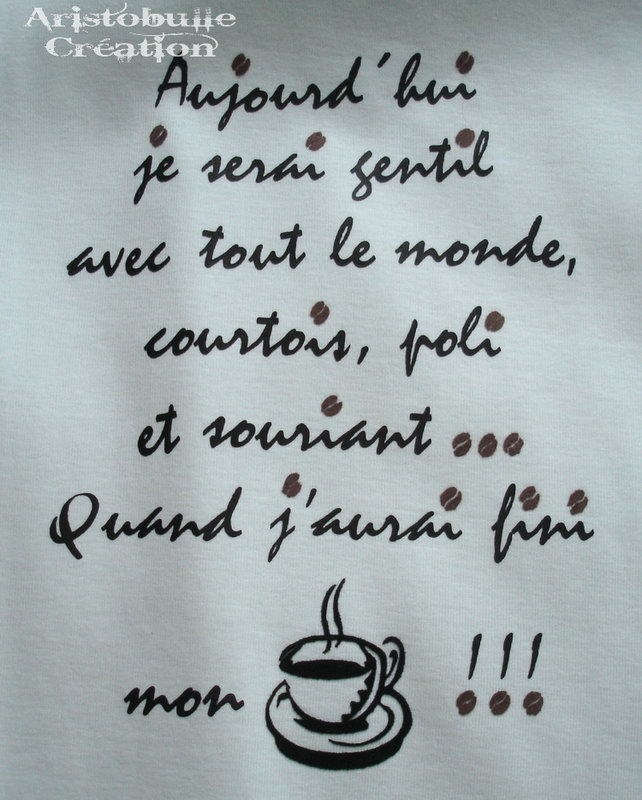 Aristobulle
Création
Aujourd'hui
je serai gentil
avec tout le monde,
courtois, poli
et souriant ...
Quand j'aurai fini
mon !!!